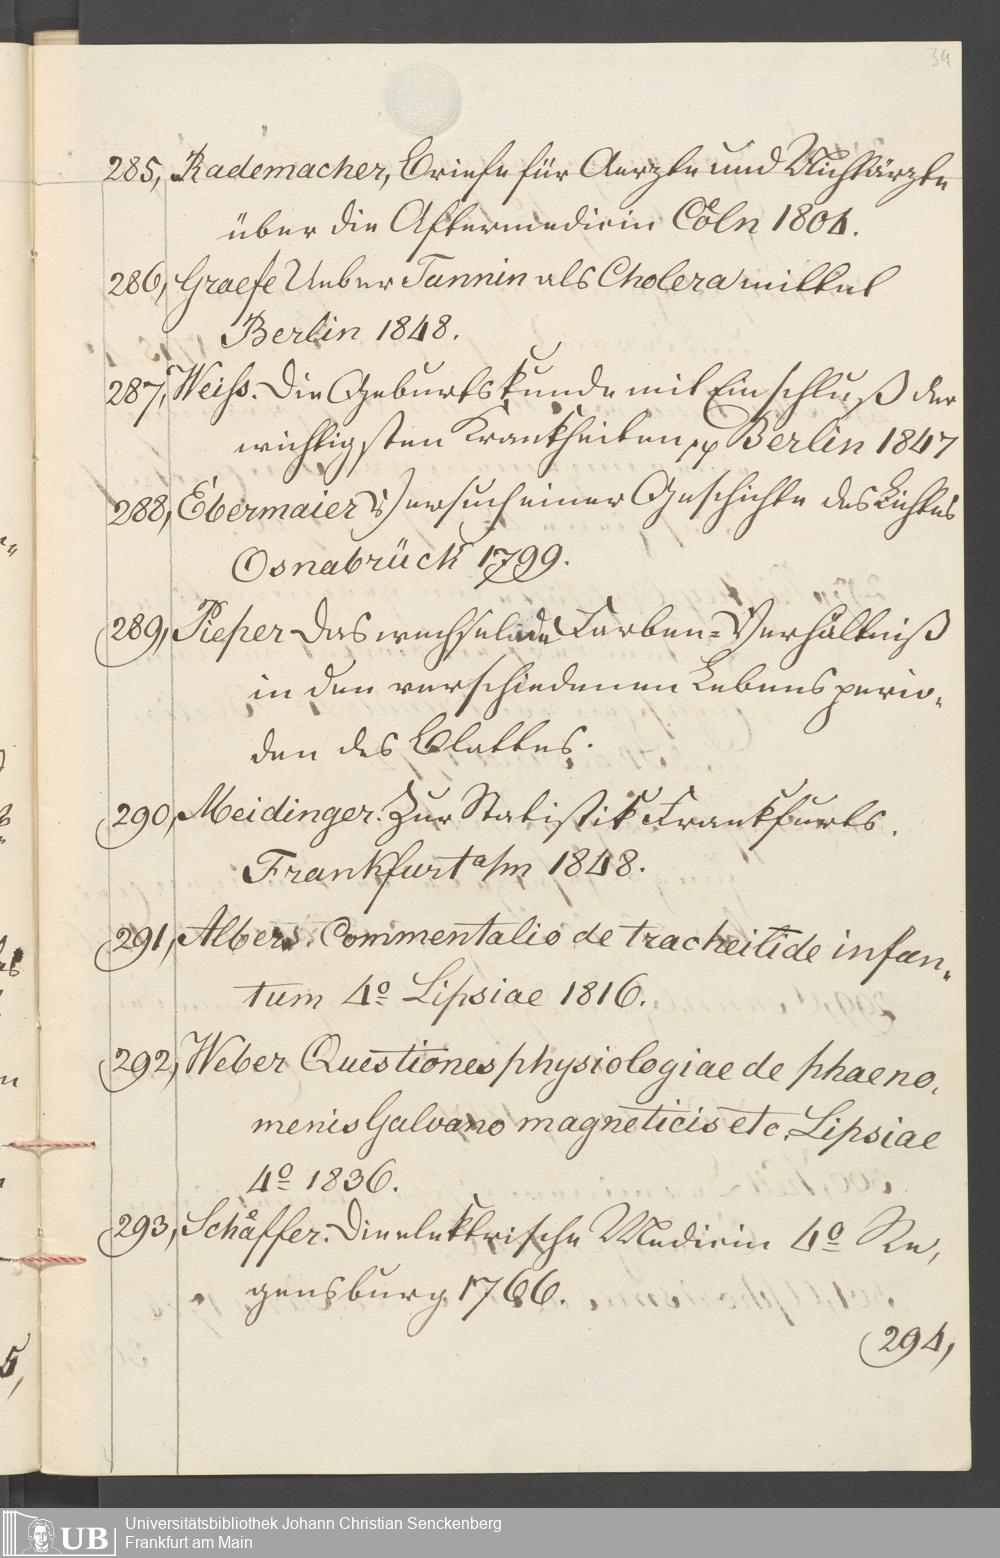 34
285, Rademacher, Briefe für Aerzte und Nichtärzte
über die Aftermedicin Cöln 1804.
286, Graefe Ueber Tannin als Cholera mittel
Berlin 1848.
287, Weiss. Die Geburtskunde mit Einschluß der
wichtigsten Krankheiten pp Berlin 1847
288, Ebermaier Versuch einer Geschichte des Lichtes
Osnabrück 1799.
289, Pieper Das wechselnde Farben-Verhältniß
in den verschiedenen Lebensperio-
den des Blattes.
290, Meidinger. Zur Statistik Frankfurts.
Frankfurt a/m 1848.
291, Albers. Commentatio de tracheitide infan-
tum 4o Lipsiae 1816.
292, Weber Questiones physiologiae de phaeno-
menis Galvano magneticis etc. Lipsiae
4o 1836.
293, Schäffer. Die elektrische Medicin 4o Re-
gensburg 1766.
294,
UB
Universitätsbibliothek Johann Christian Senckenberg
Frankfurt am Main